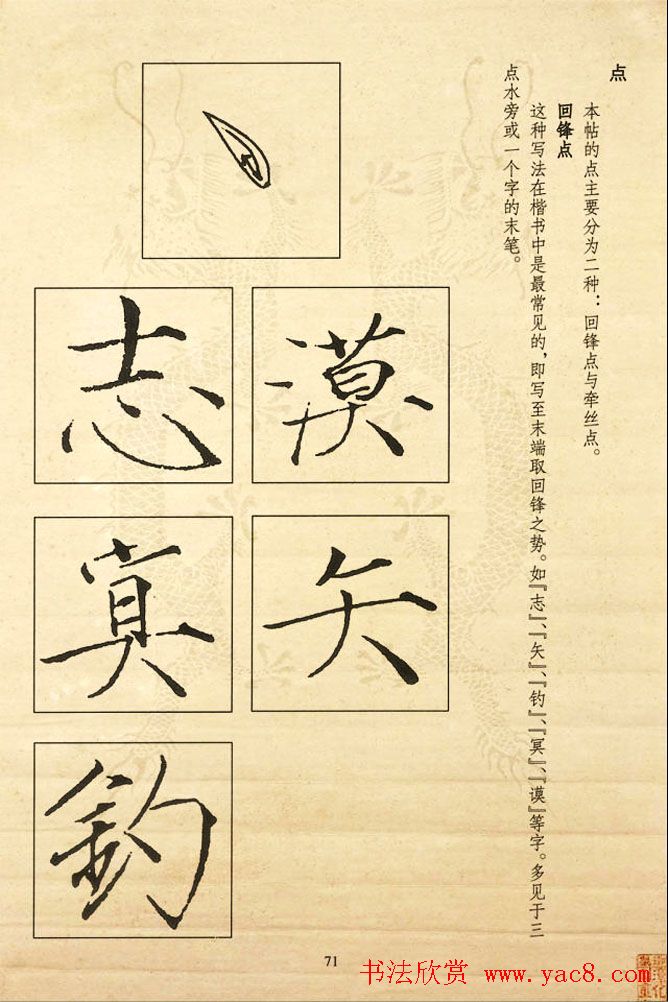 点
本帖的点主要分为二种：回锋点与牵丝点。
回锋点
这种写法在楷书中是最常见的，即写至末端取回锋之势。如『志』、『矢』、『钓』、『冥』、『谟』等字。多见于三
点水旁或一个字的末笔。
漠
志
矢
冥
釣
71
书法欣赏 www.yac8.com